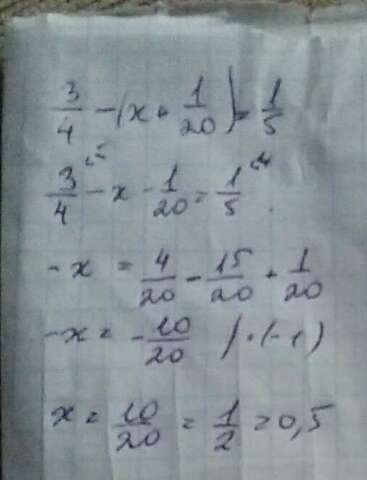 3/4 - (x + 1/20) = 1/5
3/4 ·5 - x - 1/20 = 1/5 ·4
-x = 4/20 - 15/20 + 1/20
-x = -10/20 | · (-1)
x = 10/20 = 1/2 = 0,5